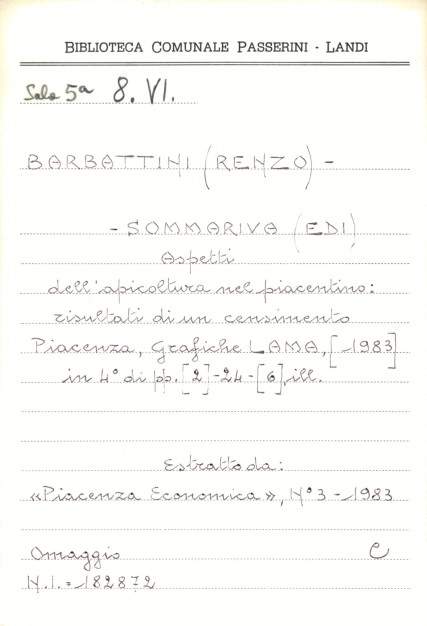 BIBLIOTECA COMUNALE PASSERINI - LANDI
Sala 5ª 8. VI.
BARBATTINI (RENZO) -
- SOMMARIVA (EDI)
Aspetti
dell'apicoltura nel piacentino:
risultati di un censimento
Piacenza, Grafiche LAMA, [1983]
in 4° di pp. [2]-24-[6], ill.
Estratto da:
«Piacenza Economica», N°3-1983
Omaggio C
N.I. = 182872